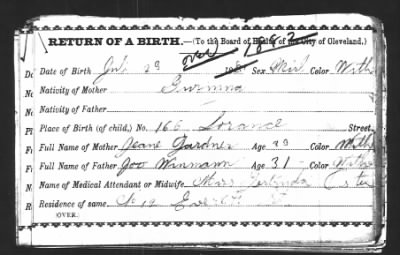 over 1882
RETURN OF A BIRTH.—(To the Board of Health of the City of Cleveland.)
Date of Birth 23 188 Sex Color With
Nativity of Mother
Nativity of Father
Place of Birth (of child,) No. 166 Lorance Street
Full Name of Mother Jeane Gardner Age 23 Color With
Full Name of Father Joo Winmann Age 31 Color With
Name of Medical Attendant or Midwife Miss
Residence of same No 12
OVER.